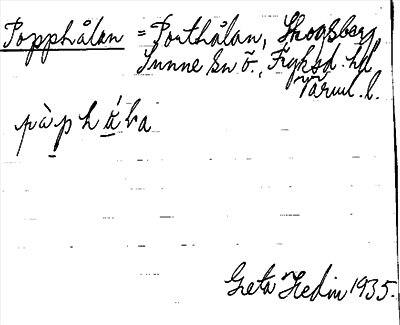 Popphålan = Porthålan, Skogsberg
Sunne sn ö., Fryksd. hd
Värml. l.
pàphåla
Greta Hedin 1935.